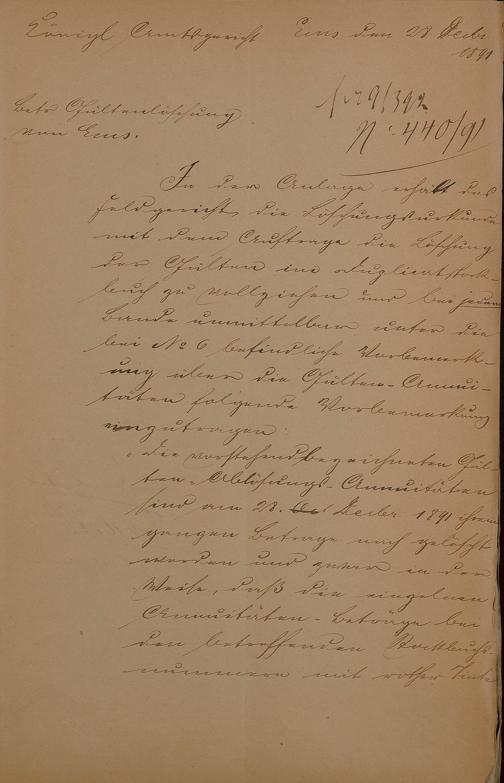 Königl Amtsgericht Ems den 28 Decbr
1891
Betr Gültenlöschung
von Ems.
No 440/91
In der Anlage erhält das
Feldgericht die Löschungsurkunde
mit dem Auftrage die Löschung
der Gülten im Duplicatstock-
buch zu vollziehen und bei jedem
Bande unmittelbar unter die
bei No. 6 befindliche Vorbemerk-
ung über die Gülten-Annui-
täten folgende Vorbemerkung
einzutragen:
"Die vorstehend bezeichneten Gül-
ten-Ablösungs-Annuitäten
sind am 28. Decbr 1891 ihrem
ganzen Betrage nach gelöscht
worden und zwar in der
Weise, daß die einzelnen
Annuitäten-Beträge bei
den betreffenden Stockbuchs-
nummern mit rother Tinte